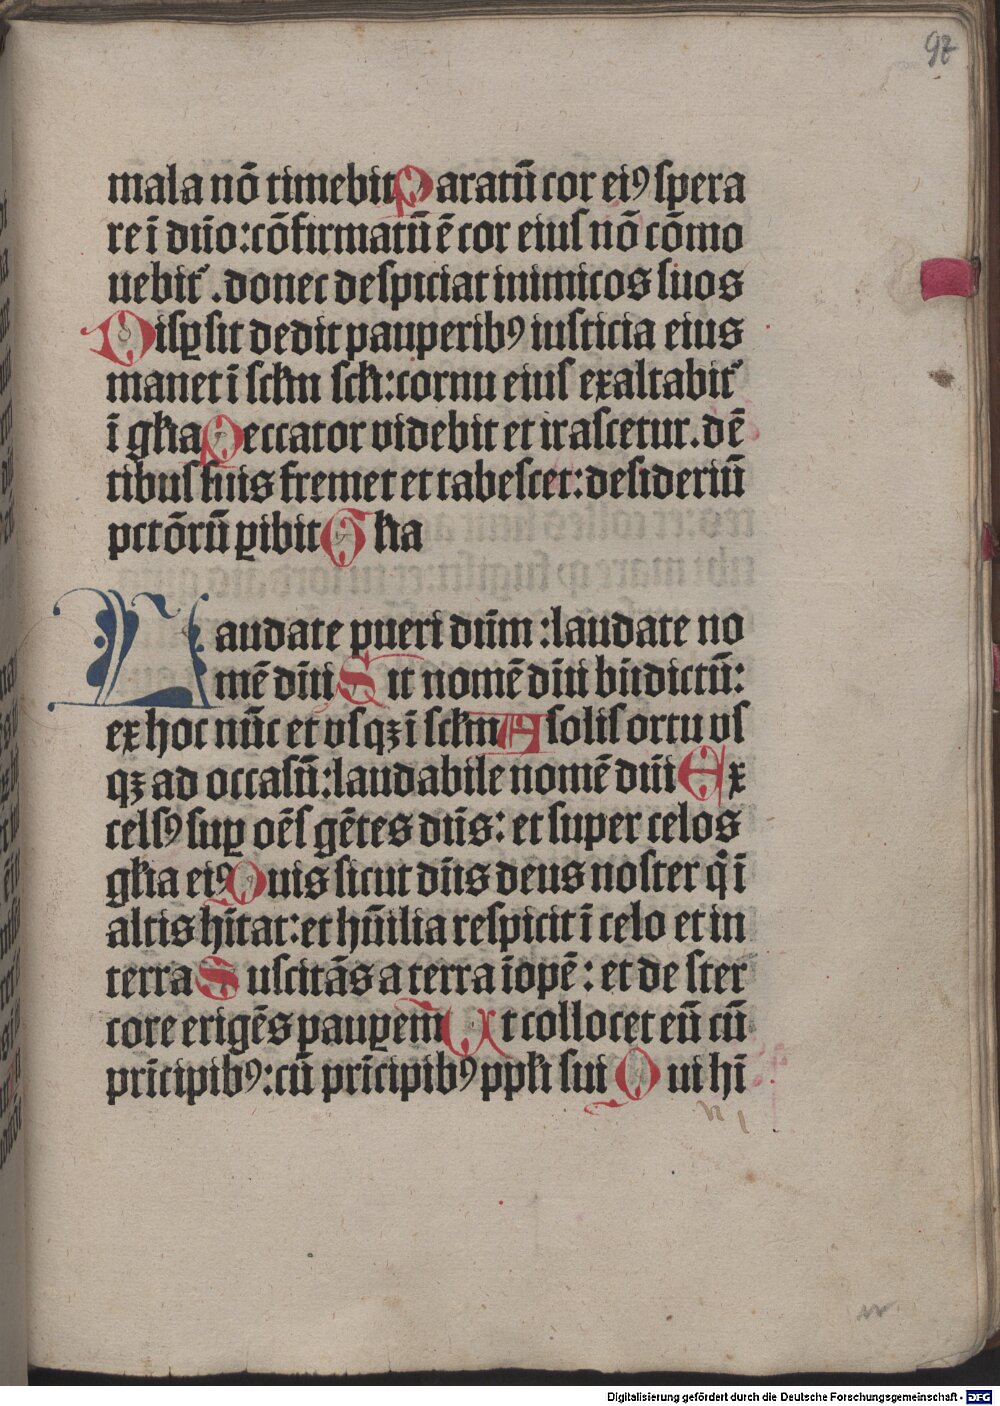 97
mala nō timebit Paratū cor eiꝰ spera
re ī dn̄o: cōfirmatū ē cor eius nō cōmo
uebit᷑. donec despiciat inimicos suos
Disꝑsit dedit pauperibꝰ iusticia eius
manet ī sclm̄ scl̄i: cornu eius exaltabit᷑
ī gl̄ia Peccator videbit et irascetur. dē
tibus suis fremet et tabescet: desideriū
pctōrū ꝑibit Gl̄ia
Laudate pueri dūm: laudate no
mē dn̄i Sit nomē dn̄i bn̄dictū:
ex hoc nūc et vsqꝫ ī sclm̄ A solis ortu vs
qꝫ ad occasū: laudabile nomē dn̄i Ex
celsꝰ suꝑ oēs gētes dn̄s: et super celos
gl̄ia eiꝰ Quis sicut dn̄s deus noster q̄ ī
altis hītat: et hūilia respicit ī celo et in
terra Suscitās a terra īopē: et de ster
core erigēs pauꝑem Ut collocet eū cū
prīcipibꝰ: cū prīcipibꝰ ppl̄i sui Qui hī
Digitalisierung gefördert durch die Deutsche Forschungsgemeinschaft - DFG